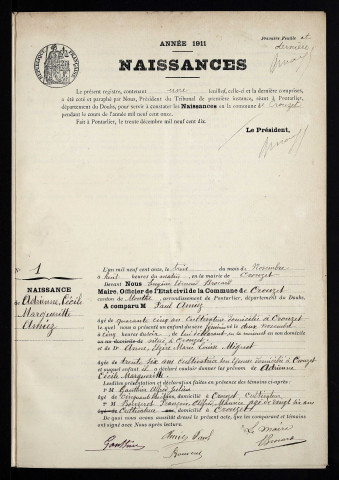 Première Feuille et
dernière
ANNÉE 1911
NAISSANCES
RÉPUBLIQUE FRANÇAISE
Le présent registre, contenant une feuille, celle-ci et la dernière comprises,
a été coté et paraphé par Nous, Président du Tribunal de première instance, séant à Pontarlier,
département du Doubs, pour servir à constater les Naissances en la commune de Crouzet
pendant le cours de l'année mil neuf cent onze.
Fait à Pontarlier, le trente décembre mil neuf cent dix.
Le Président,
N° 1
NAISSANCE
de
Adrienne Cécile
Marguerite
Amiez
L'an mil neuf cent onze, le trois du mois de Novembre
à huit heures du matin, en la mairie de Crouzet
Devant Nous
Maire, Officier de l'État civil de la Commune de Crouzet
canton de Mouthe, arrondissement de Pontarlier, département du Doubs,
A comparu M Paul Amiez
âgé de quarante cinq ans cultivateur domicilié à Crouzet
lequel nous a présenté un enfant du sexe féminin né le deux Novembre
à cinq heures du soir, de lui déclarant, en son domicile
sis à Crouzet
et de D^e Anne Marie Louise
âgée de trente six ans cultivatrice son épouse domiciliée à Crouzet
et auquel enfant il a déclaré vouloir donner les prénoms de Adrienne
Cécile Marguerite
Lesdites présentation et déclaration faites en présence des témoins ci-après :
1° M Gauthier Alfred
âgé de cinquante ans, domicilié à Crouzet, Cultivateur
2° M François Maurice âgé de vingt six ans
Cultivateur domicilié à Crouzet
De quoi nous avons dressé le présent acte, que les comparant et témoins
ont signé avec Nous après lecture.
Gauthier
Amiez Paul
Le Maire